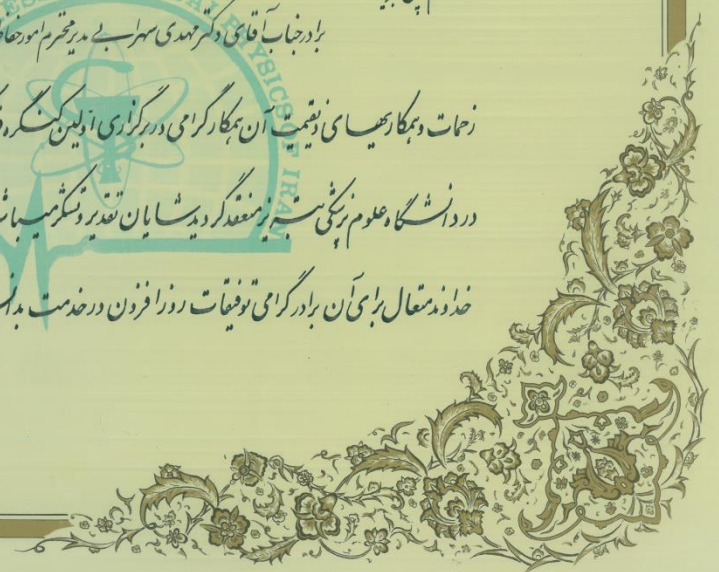 برادر جناب آقای دکتر مهدی سهرابی مدیر محترم امور حفا
زحمات و همکاریهای ذیقیمت آن همکار گرامی در برگزاری اولین کنگره
در دانشگاه علوم پزشکی تبریز منعقد گردید شایان تقدیر و تشکر میباش
خداوند متعال برای آن برادر گرامی توفیقات روز افزون در خدمت بدا
PHYSICS OF IRAN